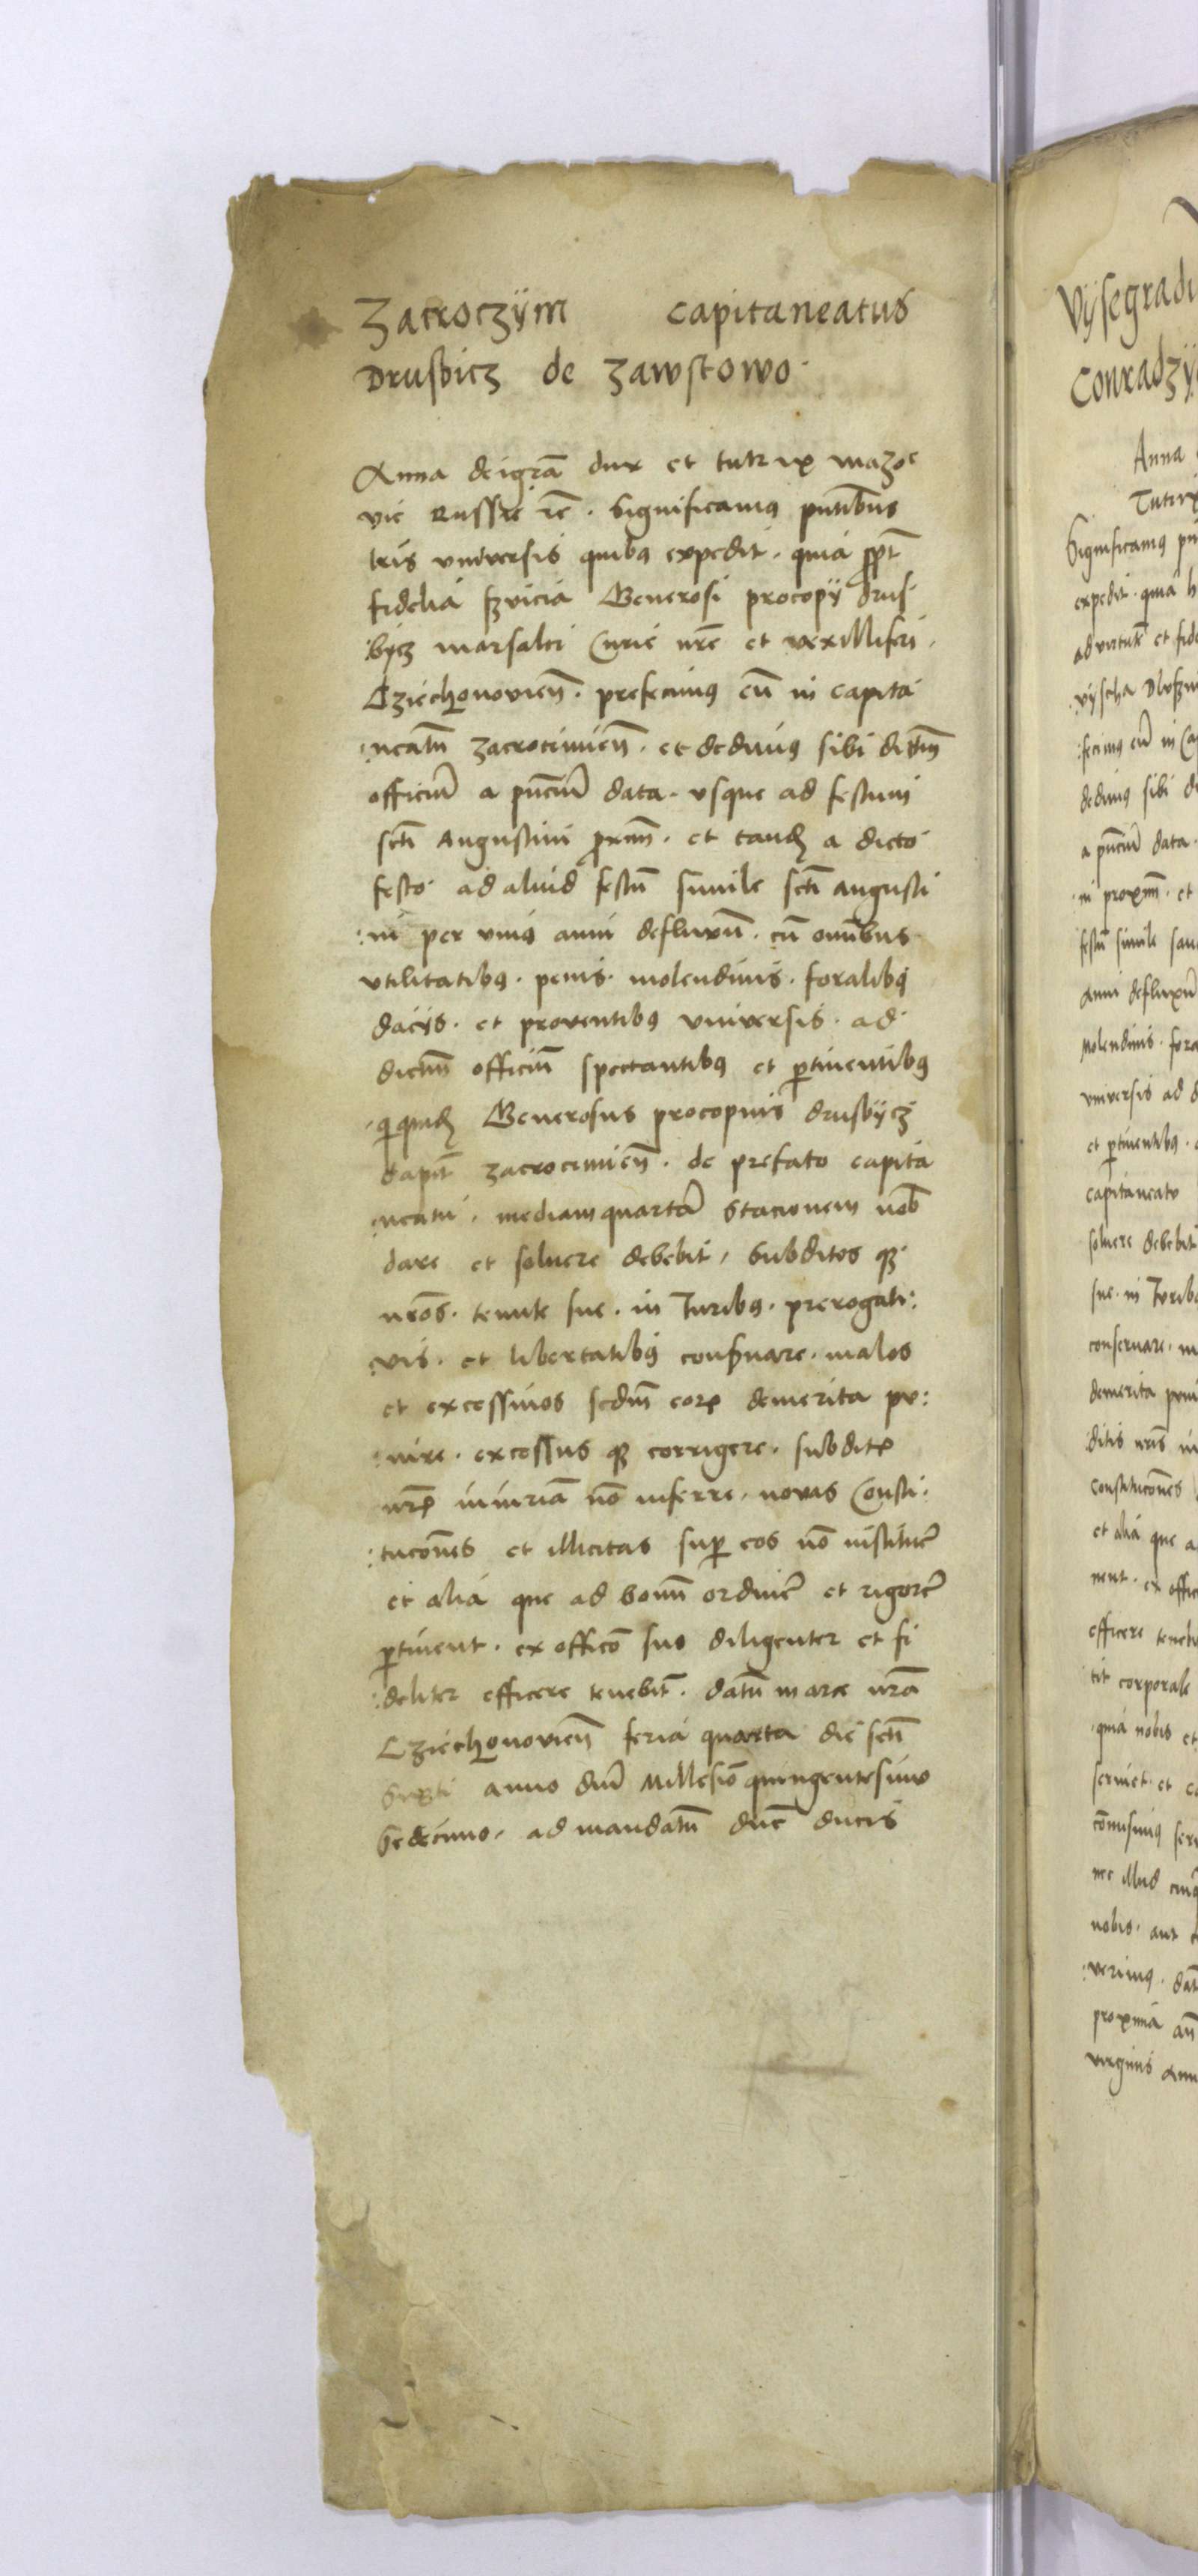 Zacroczÿm capitaneatus
Drusbicz de zawstowo.
Anna dei grã dux et tutrix mazo
vie Russie rc̄. Significamus pñtibus
lris universis quibus expedit. quia ppt̄
fidelia servicia Generosi procopÿ drus
:bÿcz marsalci Curie nr̄e et vexilliferi.
Cziechonovieñ. prefecimus eũ in capita
:neatũ zacrocimieñ. et dedimus sibi dictũ
officiũ a pñciũ data. usque ad festum
scti Augustini proxm̃. et tandẽ a dicto
festo ad aliud festũ simile scti Augusti
:ni per unius anni defluxũ. cũ omnibus
utilitatibus. penis. molendinis. foralibus
dacÿs. et proventibus universis. ad
dictum officiũ spectantibus et pertinentibus
qui quidẽ Generosus procopius drusbÿcz
Capit̃ zacrocimieñ. de prefato capita
:neatu. mediam quartã Stacionem nob̃
dare et solvere debebit, Subditos que
nr̄os. tenute sue. in Iuribus. prerogati:
:vis. et libertatibus conservare. malos
et excessivos secdm̃ eorum demerita pu:
:nire. excessus que corrigere. subditis
nr̄is iniuriã nõ inferre. novas Consti:
:tucões et illicitas super eos nõ instituẽ
et alia que ad bonũ ordinẽ et rigorẽ
pertinent. ex officõ suo diligenter et fi
:deliter efficere tenebit̃. datũ in arce nr̄a
Cziechonovieñ feria quarta die scti
anno dñi Millesiõ quingentesimo
Sedecimo. ad mandatũ dñe ducis
Vÿsegradi
Conradzÿ
Anna
Tutrix
Significamus
expedit. quia
ad virtutẽ et
vÿscha
:fecimus eũ in
dedimus sibi
a pñciũ data.
:ni proxm̃. et
festũ simile
Anni defluxũ
Molendinis.
universis ad
et pertinentibus.
capitaneato
solvere debebit
sue. in Iuribus
conservare.
demerita
ditis nr̄is
Constitucões
et alia que
nent. ex
efficere
tit corporale
quia nobis et
serviet. et
cõmisimus
nec illud
nobis. aut
:verimus.
proxima
virginis